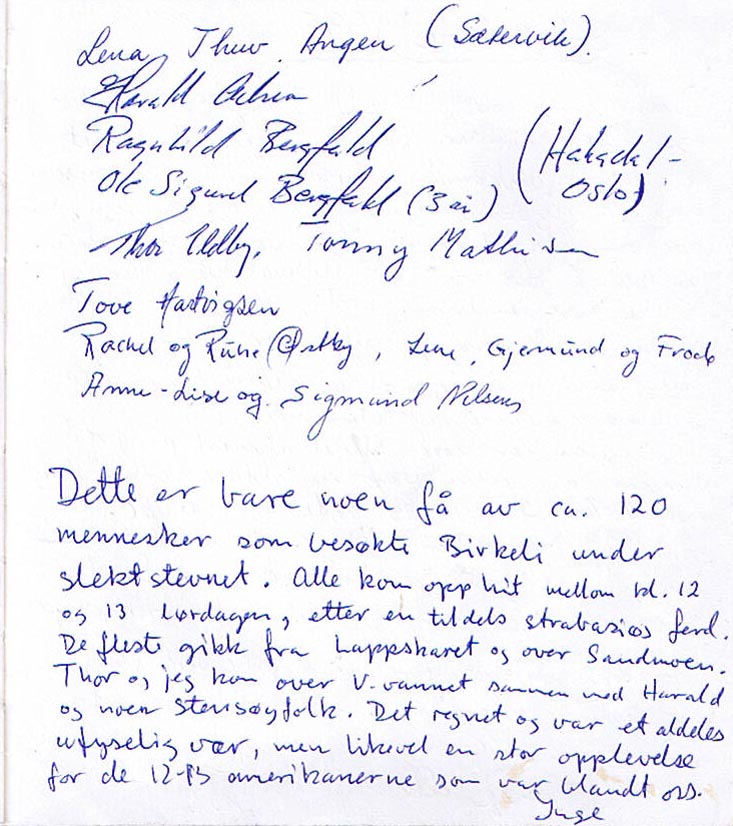 Lena Thuv Angen (Sætervik).
Harald
Ragnhild Bergfald (Hakadal-
Ole Sigurd Bergfald (3 år) Oslo)
Thor Udby, Tonny Mathisen
Tove Hartvigsen
Rachel og Rune Østby, Lene, Gjermund og Frode
Anne-Lise og Sigmund Nilsen
Dette er bare noen få av ca. 120
mennesker som besøkte Birkeli under
slektstevnet. Alle kom opp hit mellom kl. 12
og 13 lørdagen, etter en tildels strabasiøs ferd.
De fleste gikk fra Lappskaret og over Sandmoen.
Thor og jeg kom over V-vannet sammen med Harald
og noen Stensøyfolk. Det regnet og var et aldeles
ufyselig vær, men likevel en stor opplevelse
for de 12-13 amerikanerne som var blandt oss.
Inge